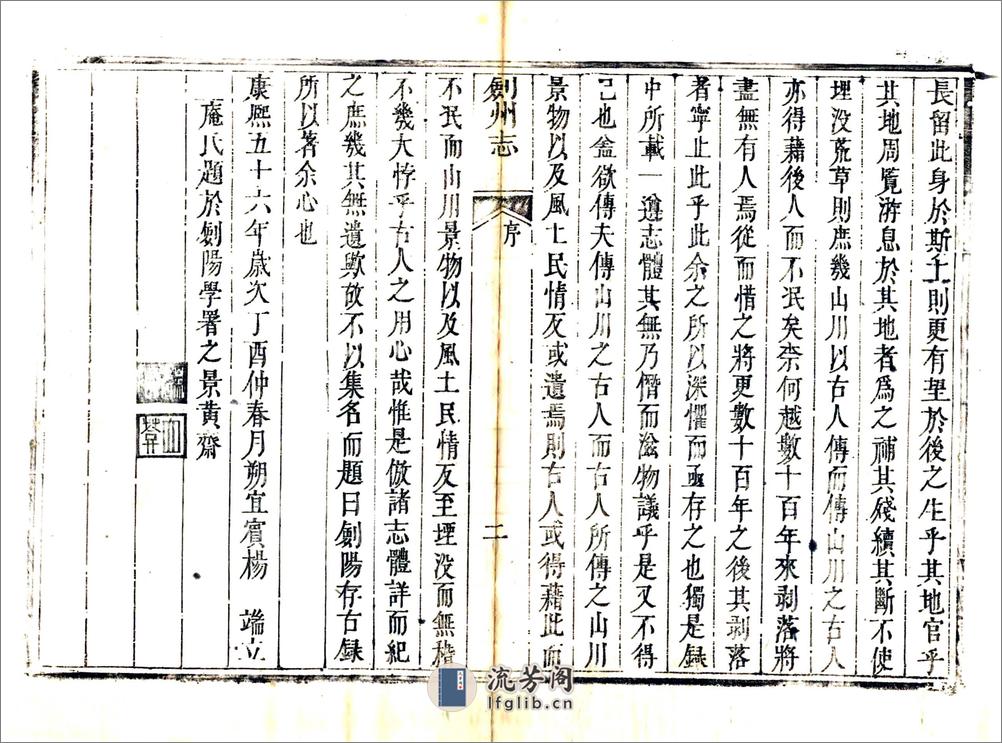 長留此身於斯土則更有望於後之生乎其地官乎
其地周覧游息於其地者為之補其殘續其斷不使
埋没荒草則庶幾山川以古人傳而傳山川之古人
亦得藉後人而不泯矣柰何越數十百年來剥落將
盡無有人焉從而惜之將更數十百年之後其剥落
者寧止此乎此余之所以深懼而亟存之也獨是録
中所載一遵志體其無乃僭而滋物議乎是又不得
已也盖欲傳夫傳山川之古人而古人所傳之山川
景物以及風土民情反或遺焉則古人或得藉此而
劍州志 序 二
不泯而山川景物以及風土民情反至堙没而無稽
不幾大悖乎古人之用心哉惟是倣諸志體詳而紀
之庶幾其無遺歟故不以集名而題曰劍陽存古録
所以著余心也
康熙五十六年歲次丁酉仲春月朔宜賓楊 端立
庵氏題於劍陽學署之景黄齋
流芳阁
lfglib.cn